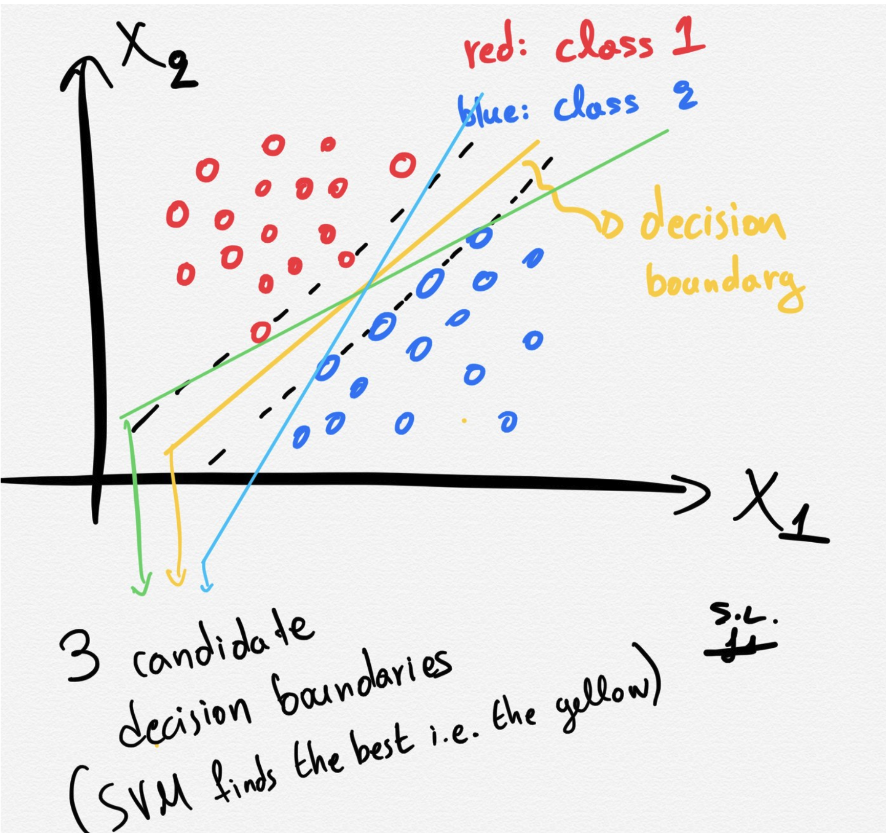 X2
red: class 1
blue: class 2
decision
boundary
X1
3 candidate
decision boundaries
(SVM finds the best i.e. the yellow)
S.L.
11